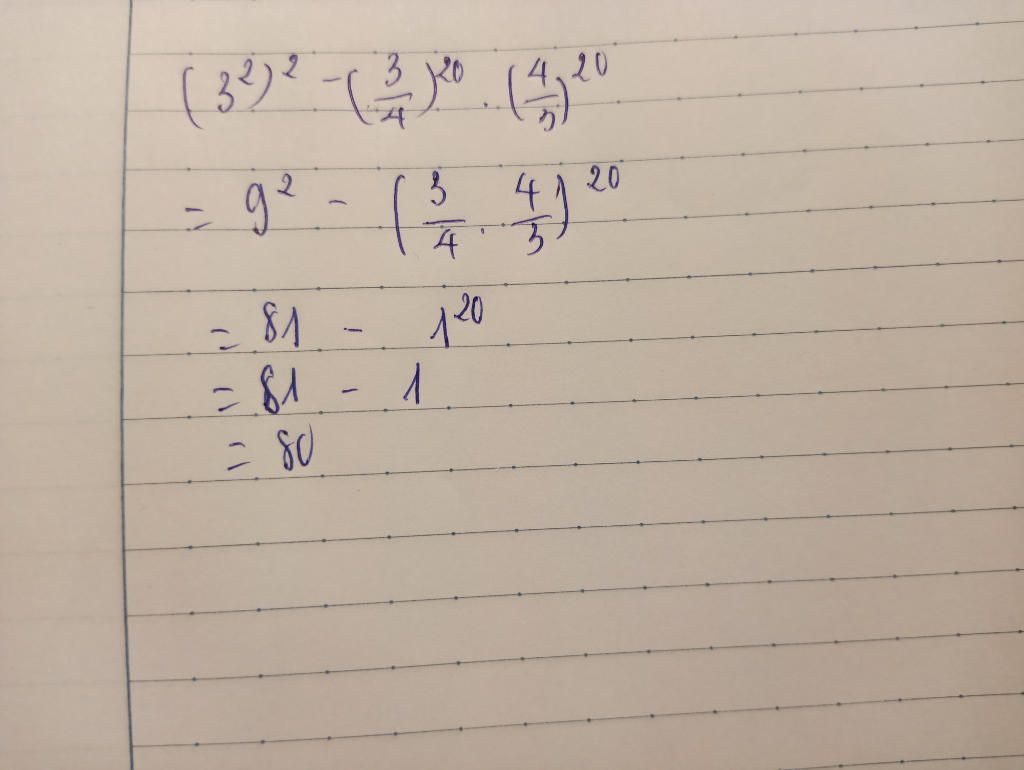 (3²)² - (3/4)²⁰ . (4/3)²⁰
= 9² - (3/4 . 4/3)²⁰
= 81 - 1²⁰
= 81 - 1
= 80